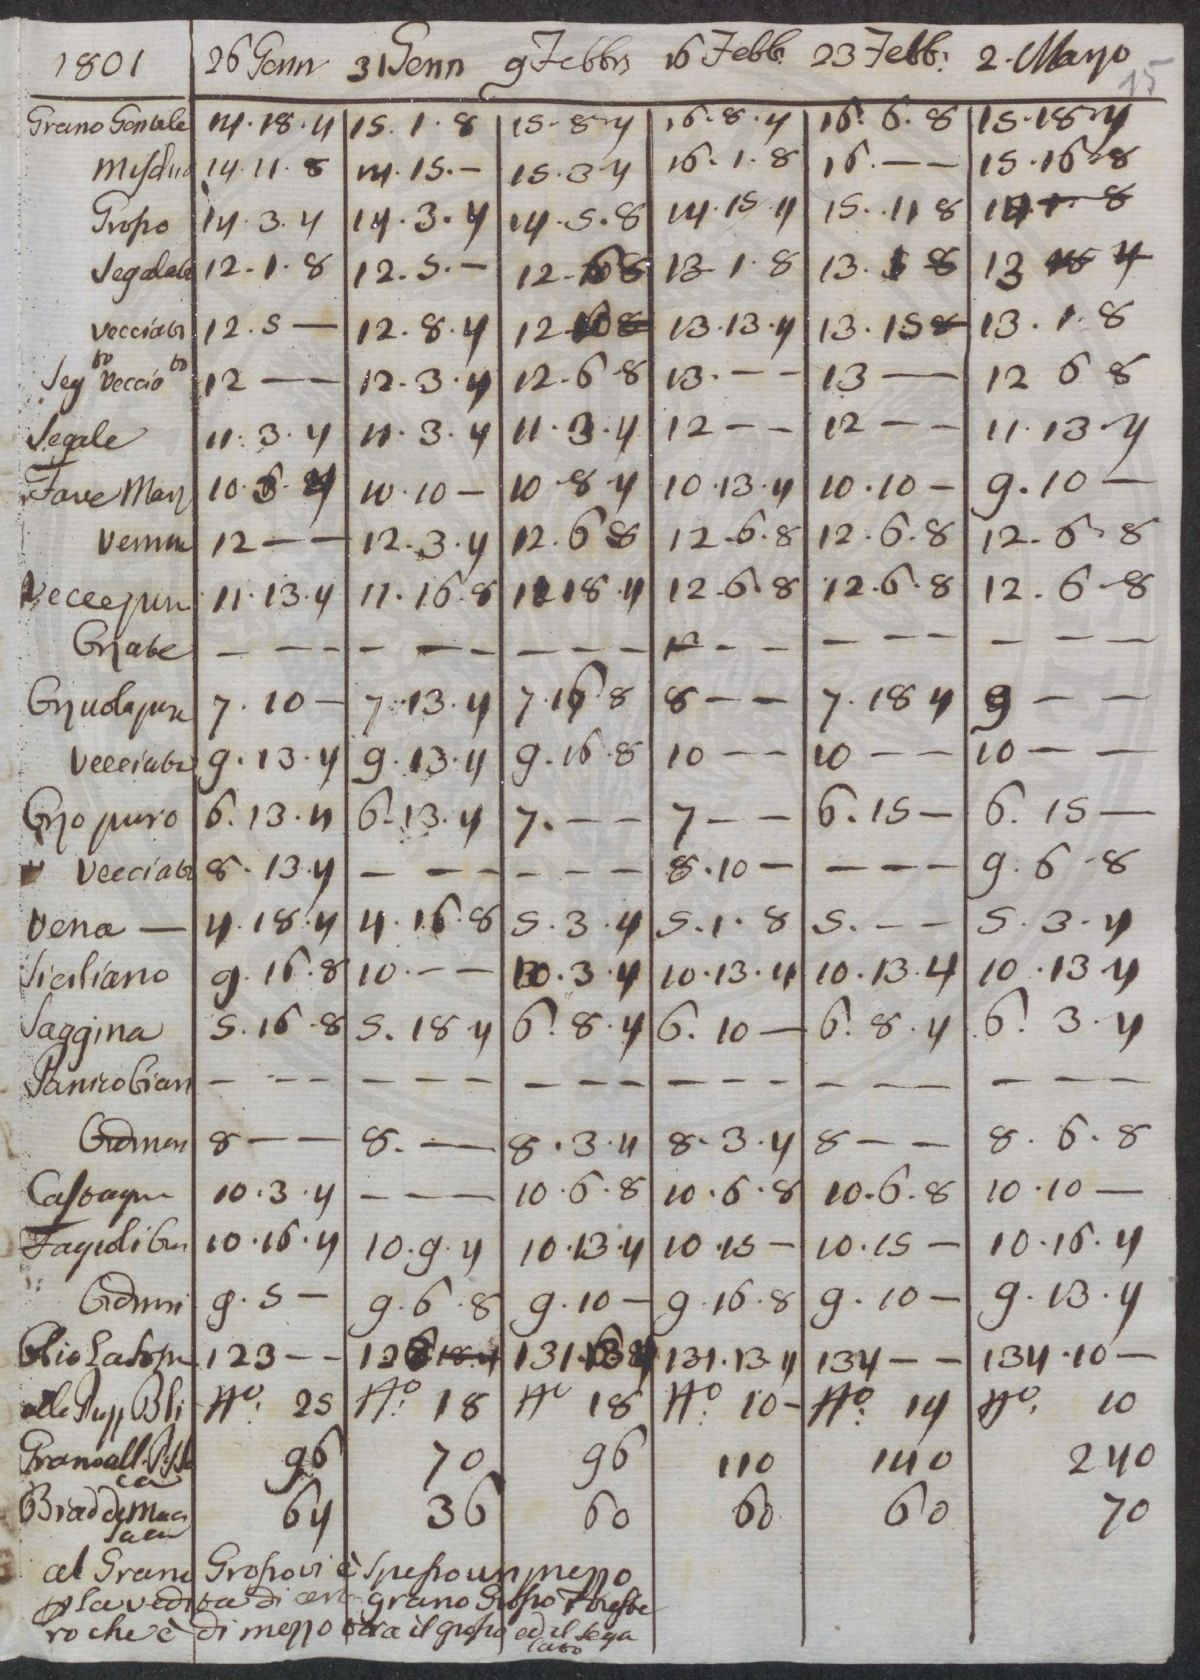 1801 26 Genn 31 Genn 9 Febbr 16 Febb. 23 Febb. 2. Marzo 15
Grano Gentale 14.18.4 15.1.8 15.8.4 16.8.4 16.6.8 15.18.4
14.11.8 14.15.— 15.3.4 16.1.8 16.—— 15.16.8
Grosso 14.3.4 14.3.4 14.5.8 14.15.4 15.11.8
Segalato 12.1.8 12.5.— 13.1.8 13. 13
Vecciato 12.5— 12.8.4 12. 13.13.4 13.15 13.1.8
Seg to Veccio to 12—— 12.3.4 12.6.8 13.—— 13—— 12 6 8
Segale 11.3.4 11.3.4 11.3.4 12—— 12—— 11.13.4
Fave Marz 10. 10.10— 10.8.4 10.13.4 10.10— 9.10—
Vernin 12—— 12.3.4 12.6.8 12.6.8 12.6.8 12.6.8
Veccepure 11.13.4 11.16.8 18.4 12.6.8 12.6.8 12.6.8
——— ——— ——— —— ——— ———
7.10— 7.13.4 7.16.8 8—— 7.18.4 9——
Vecciata 9.13.4 9.13.4 9.16.8 10—— 10—— 10——
Orzo puro 6.13.4 6.13.4 7.—— 7—— 6.15— 6.15—
Vecciato 8.13.4 ——— ——— 8.10— ——— 9.6.8
Vena — 4.18.4 4.16.8 5.3.4 5.1.8 5.—— 5.3.4
Siciliano 9.16.8 10.—— 10.3.4 10.13.4 10.13.4 10.13.4
Saggina 5.16.8 5.18.4 6.8.4 6.10— 6.8.4 6.3.4
Panico bian ——— ——— ——— ——— ——— ———
8—— 8.— 8.3.4 8.3.4 8—— 8.6.8
Castagne 10.3.4 ——— 10.6.8 10.6.8 10.6.8 10.10—
Fagioli bian 10.16.4 10.9.4 10.13.4 10.15— 10.15— 10.16.4
9.5— 9.6.8 9.10— 9.16.8 9.10— 9.13.4
Olio 123—— 131. 131.13.4 134—— 134.10—
alla Bli No: 25 No: 18 No 18 No: 10— No: 14 No: 10
Grano all 96 70 96 110 140 240
ca
Biad di 64 36 60 60 60 70
al Grano Grosso vi è spesso un mezzo
la ved di grano Grosso
ro che è di mezzo tra il grosso ed il Sega
lato